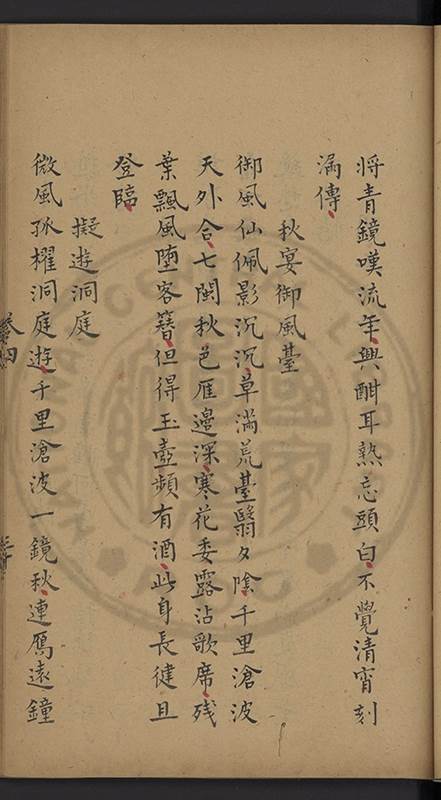 将青鏡嘆流年興酣耳熟忘頭白不覺清宵刻
漏傳
秋宴御風臺
御風仙佩影沉沉草滿荒臺翳夕陰千里滄波
天外合七閩秋色雁邊深寒花委露沾歌席残
葉飄風墮客簪但得玉壺頻有酒此身長健且
登臨
擬遊洞庭
微風孤櫂洞庭遊千里滄波一鏡秋連雁遠鐘